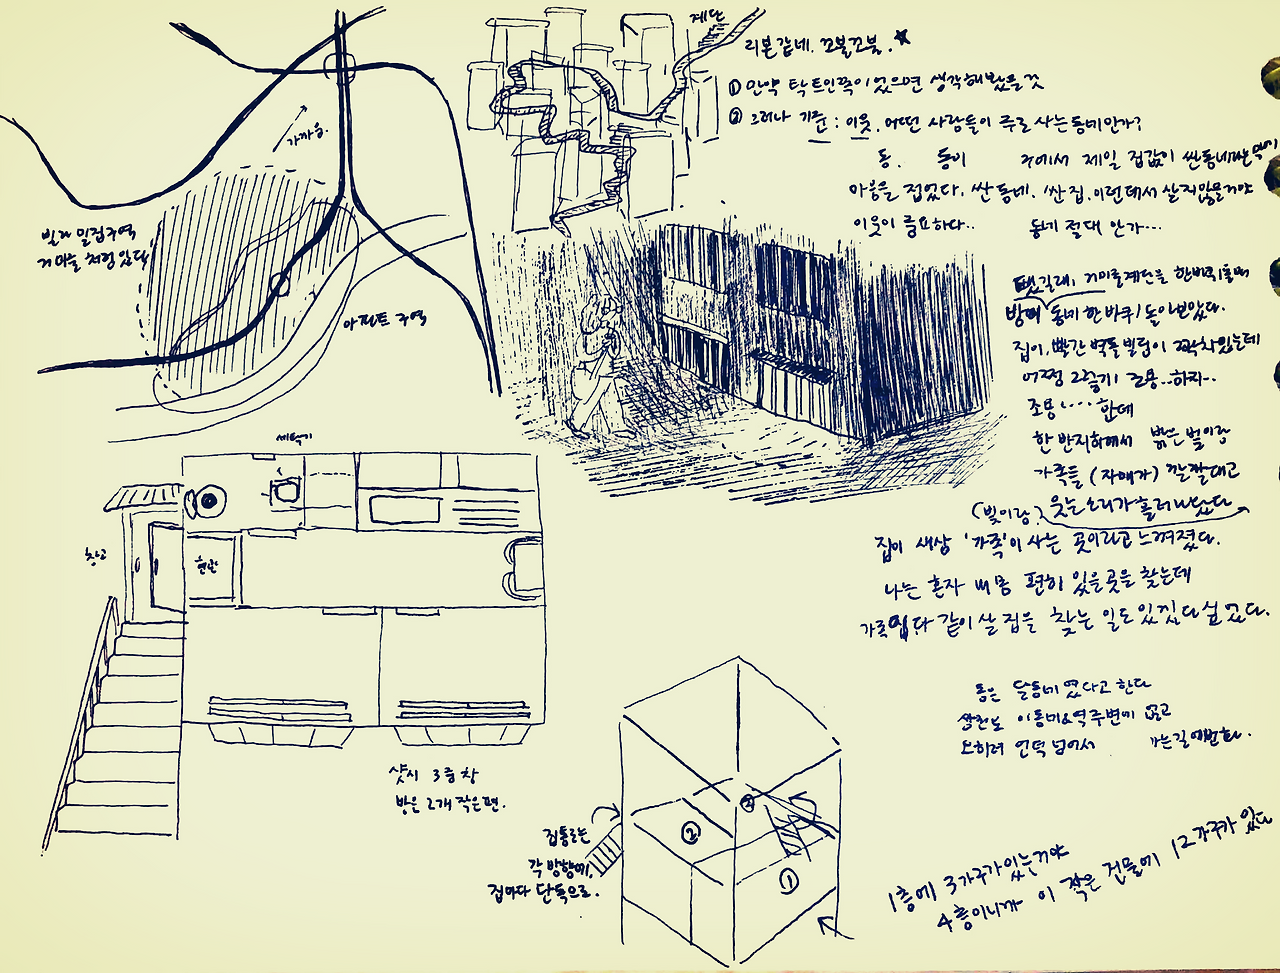 계단
리본같네. 꼬불꼬불. ★
① 만약 탁 트인쪽이었으면 생각해봤을 것
② 그러나 기준 : 이웃. 어떤 사람들이 주로 사는 동네인가?
동. 동이 중에서 제일 집값이 싼동네라는
마음을 접었다. 싼 동네. 싼 집. 이런데서 살지않을거야
이웃이 중요하다.. 동네 절대 안가...
가까움.
빌라 밀집구역
거미줄 처럼 있다
아파트 구역
땟길래, 거미줄계단을 한바퀴
동네 한바퀴 돌아보았다.
집이, 빨간 벽돌 빌딩이 꽉차있는데
어쩜 그렇게 조용..하지..
조용....한데
한 반지하에서 밝은 빛이랑
가족들 (자매가) 깔깔대고
(빛이랑) 웃는소리가 흘러나왔다
집이 새삼 '가족'이 사는 곳이라고 느껴졌다.
나는 혼자 내 몸 편히 있을곳을 찾는데
가족마다 같이 살 집을 찾는 일도 있겠다 싶었다.
세탁기
창고
현관
샷시 3중창
방은 2개 작은편.
동은 달동네였다고 한다
상권도 이동네&역주변에 없고
오히려 언덕 넘어서 가는길에번화.
집통로는
각 방향에,
집마다 단독으로.
②
②
①
1층에 3가구가있는거야
4층이니까 이 작은 건물에 12가구가 있다